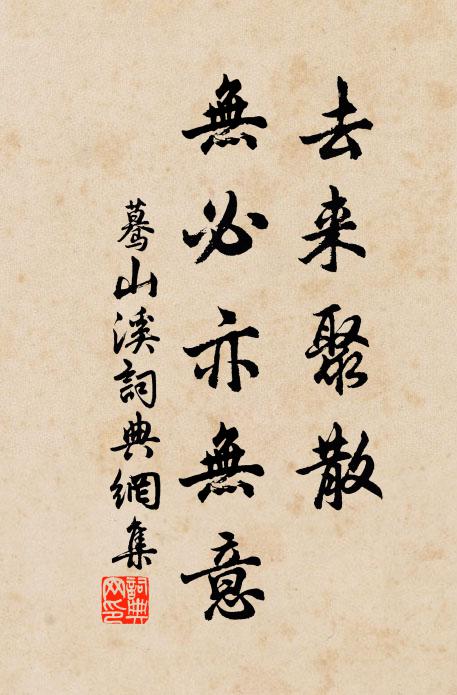 去来聚散
無必亦無意
蓦山溪詞典網集
詞典网印